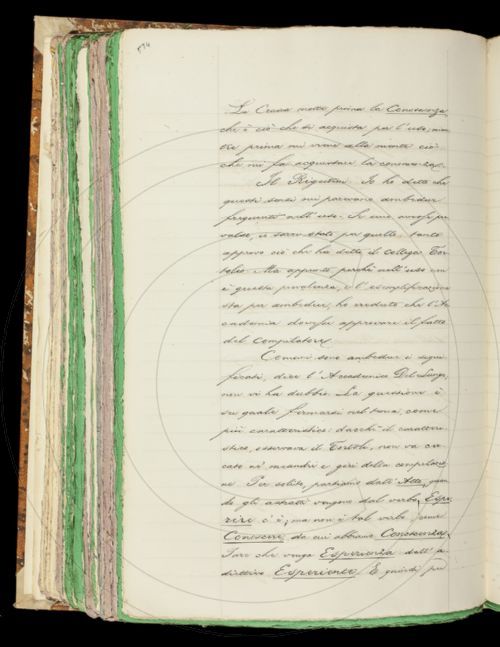 574
La Crusca mette prima la Conoscenza
che è ciò che si acquista per l'uso, men
tre prima mi viene alla mente ciò
che mi fa acquistare la conoscenza.
Il Rigutini. Io ho detto che
questi sensi mi parevano ambedue
frequenti nell'uso. Se uno avesse pre
valso, io sarei stato per quello: tanto
approvo ciò che ha detto il collega Tor
tolio. Ma appunto perchè nell'uso non
è questa prevalenza, e l'esemplificazione
sta per ambedue, ho creduto che l'Ac
cademia dovesse approvare il fatto
del compilatore.
Comuni sono ambedue i signi
ficati, dice l'Accademico Del Lungo,
non vi ha dubbio. La questione è
su quale fermarsi nel tema, come
più caratteristico: dacchè il caratteri
stico, osservava il Tortoli, non va cer
cato nei meandri e giri della compilazio
ne. Per solito, partiamo dall'Atto, quan
do gli astratti vengono dal verbo. Espe
rire c'è, ma non è tal verbo come
Conoscere, da cui abbiamo Conoscenza.
Pare che venga Esperienza dall'a
diettivo Esperiente. E quindi per